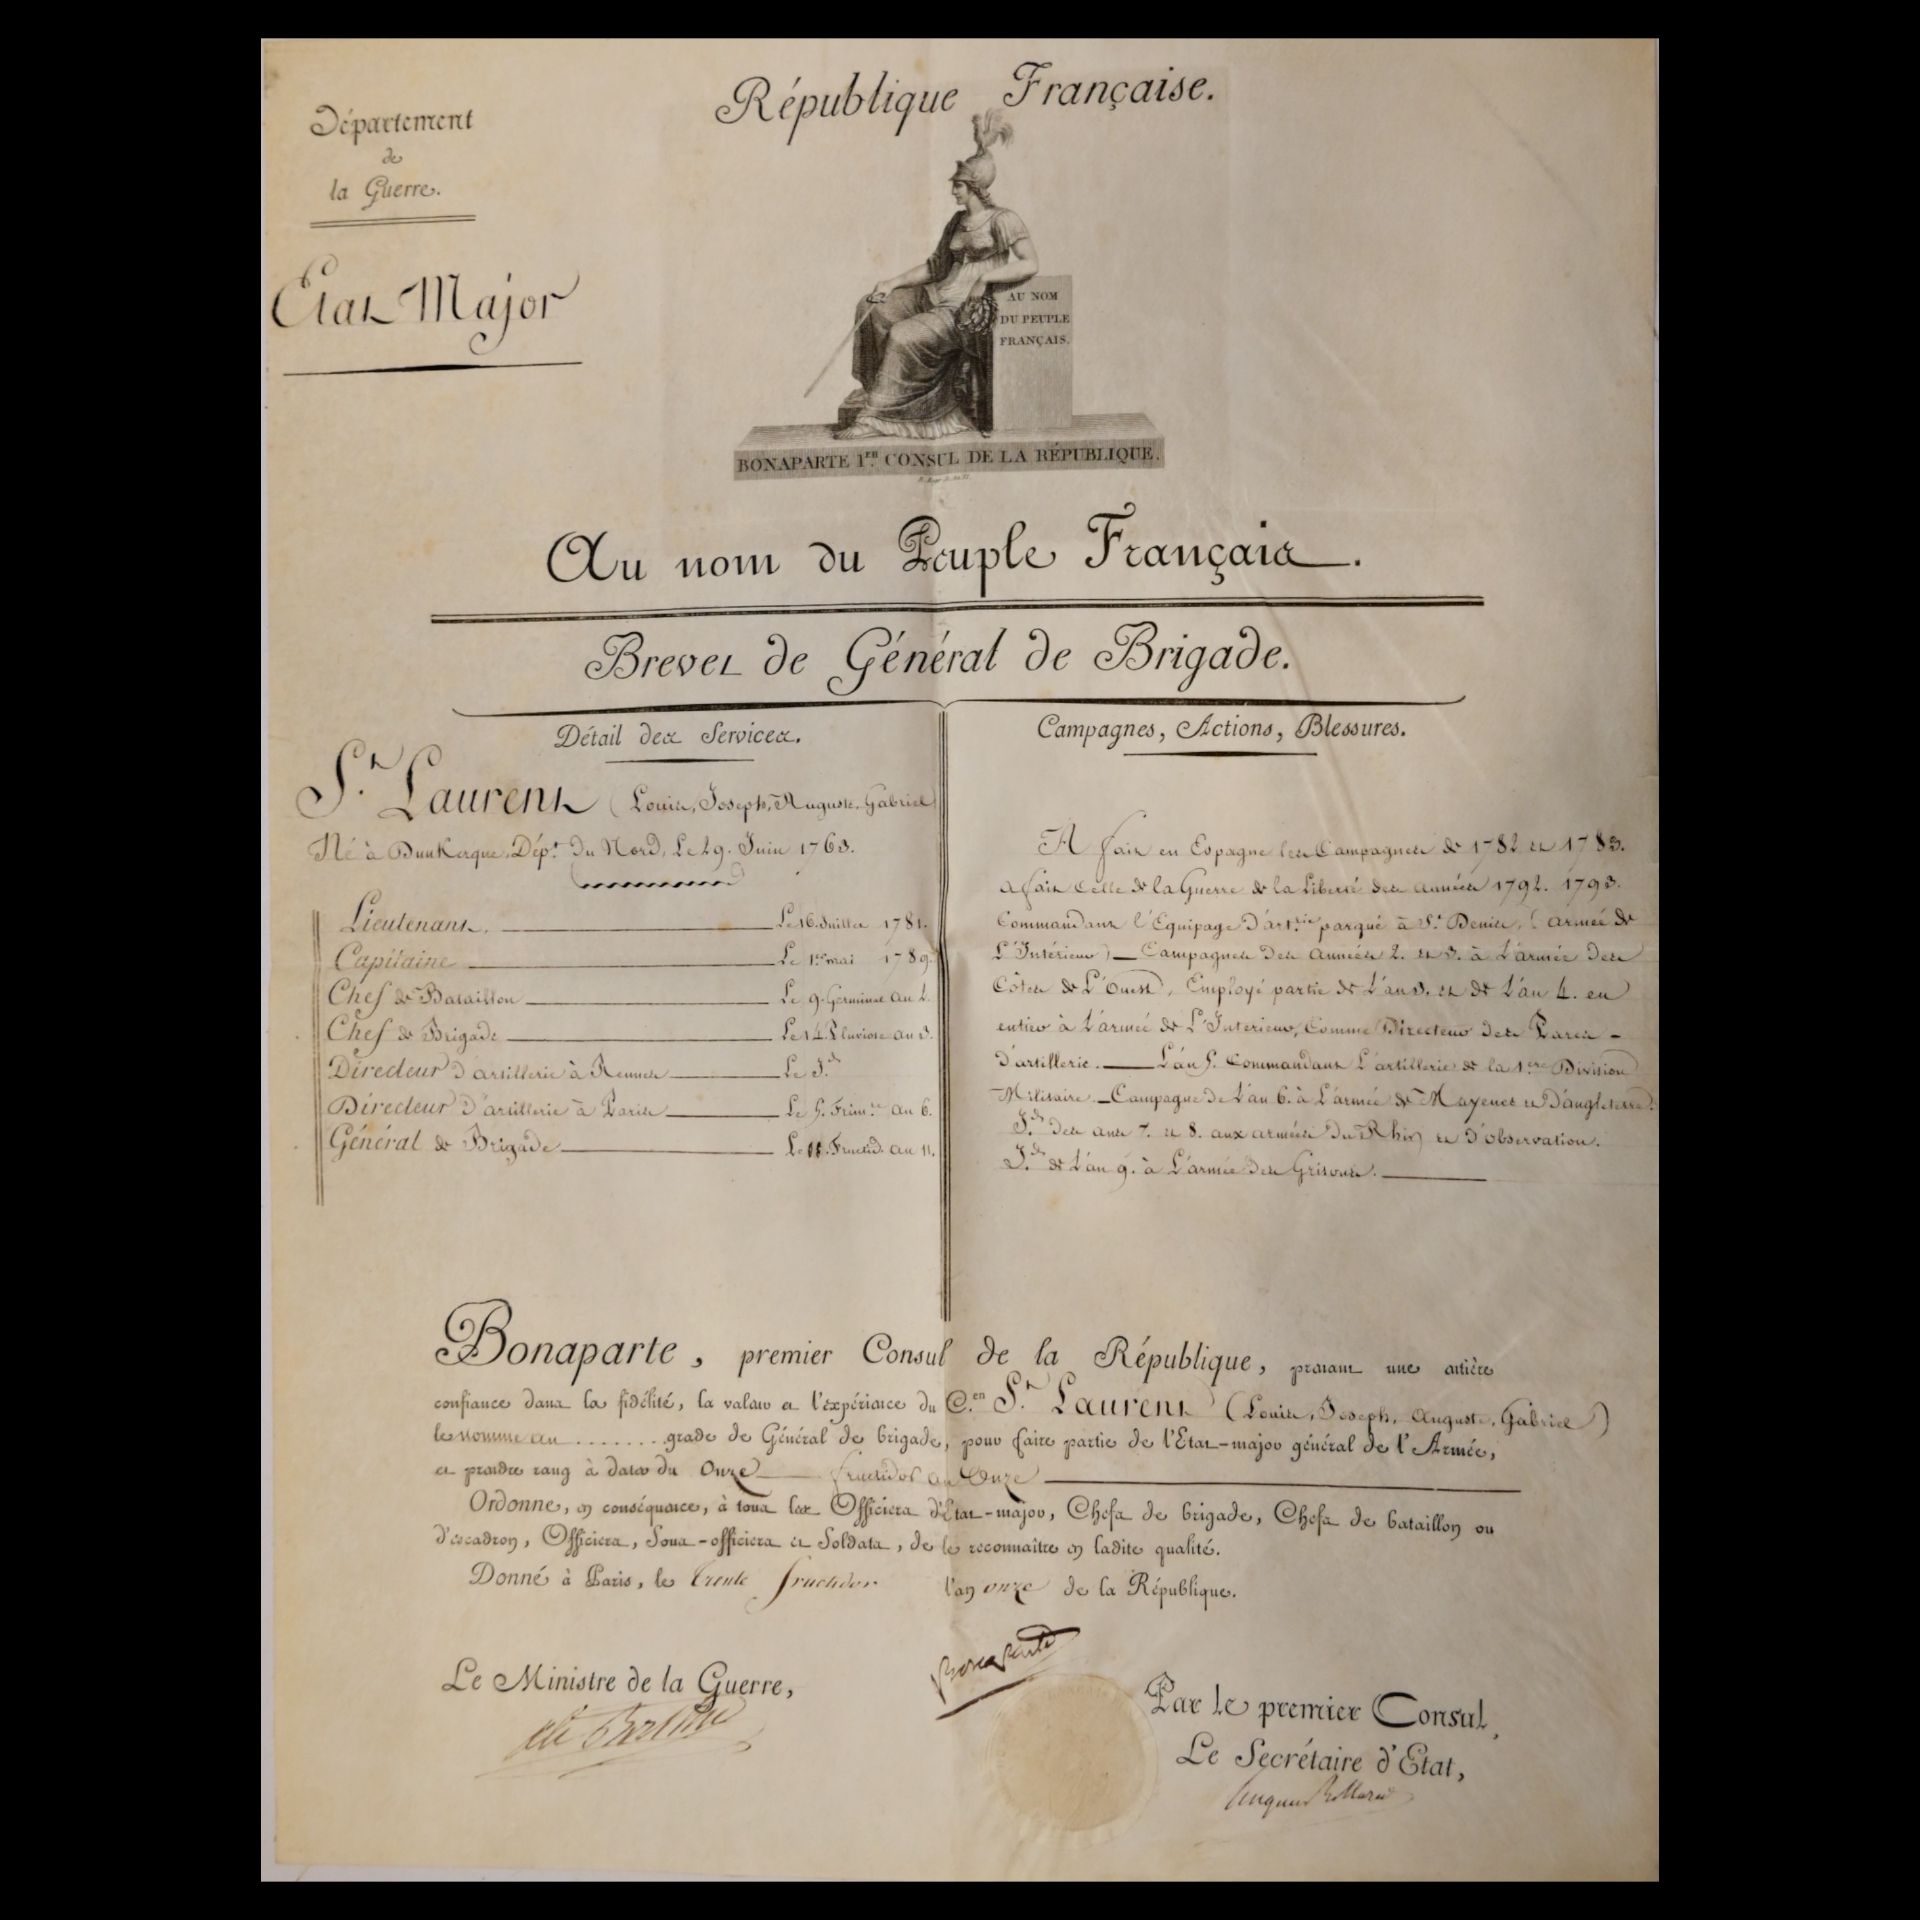 République Française.
Département
de
la Guerre.
Etat Major
AU NOM
DU PEUPLE
FRANÇAIS.
BONAPARTE 1.ER CONSUL DE LA RÉPUBLIQUE.
Au nom du Peuple Français.
Brevet de Général de Brigade.
Détail des Services.
S.t Laurent (Louis, Joseph, Auguste, Gabriel)
Né à Dunkerque, Dép.t du Nord, Le 29. Juin 1763.
Lieutenant. Le 16. Juillet 1781.
Capitaine Le 1.er mai 1789.
Chef de Bataillon Le 9. Germinal an 2.
Chef de Brigade Le 14. Pluviose an 3.
Directeur d'artillerie à Rennes Le J.d
Directeur d'artillerie à Paris Le 5. Frim.re an 6.
Général de Brigade Le 11. Fructid. an 11.
Campagnes, Actions, Blessures.
A fait en Espagne les Campagnes de 1782 et 1783.
a fait celle de la Guerre de la Liberté des années 1792. 1793.
Commandant l'Equipage d'art.rie parqué à S.t Denis, (armée de
L'Intérieur) Campagnes des années 2. et 3. à L'armée des
Côtes de L'Ouest, Employé partie de L'an 3. et de L'an 4. en
entier à L'armée de L'Interieur, Comme Directeur des Parcs
d'artillerie. L'an 5. Commandant L'artillerie de la 1.ere Division
Militaire. Campagne de L'an 6. à L'armée de Mayence et d'angleterre.
J.d des ans 7. et 8. aux armées du Rhin et d'observation.
J.d de L'an 9. à L'armée des Grisons.
Bonaparte, premier Consul de la République, prenant une entière
confiance dans la fidélité, la valeur et l'expérience du C.en S.t Laurent (Louis, Joseph, Auguste, Gabriel)
le nomme au ....... grade de Général de brigade, pour faire partie de l'Etat-major général de l'Armée,
et prendre rang à dater du Onze fructidor an Onze
Ordonne, en conséquence, à tous les Officiers d'Etat-major, Chefs de brigade, Chefs de bataillon ou
d'escadron, Officiers, Sous-officiers et Soldats, de le reconnaître en ladite qualité.
Donné à Paris, le trente fructidor l'an onze de la République.
Bonaparte
Le Ministre de la Guerre,
Par le premier Consul,
Le Secrétaire d'Etat,
Hugues B Maret